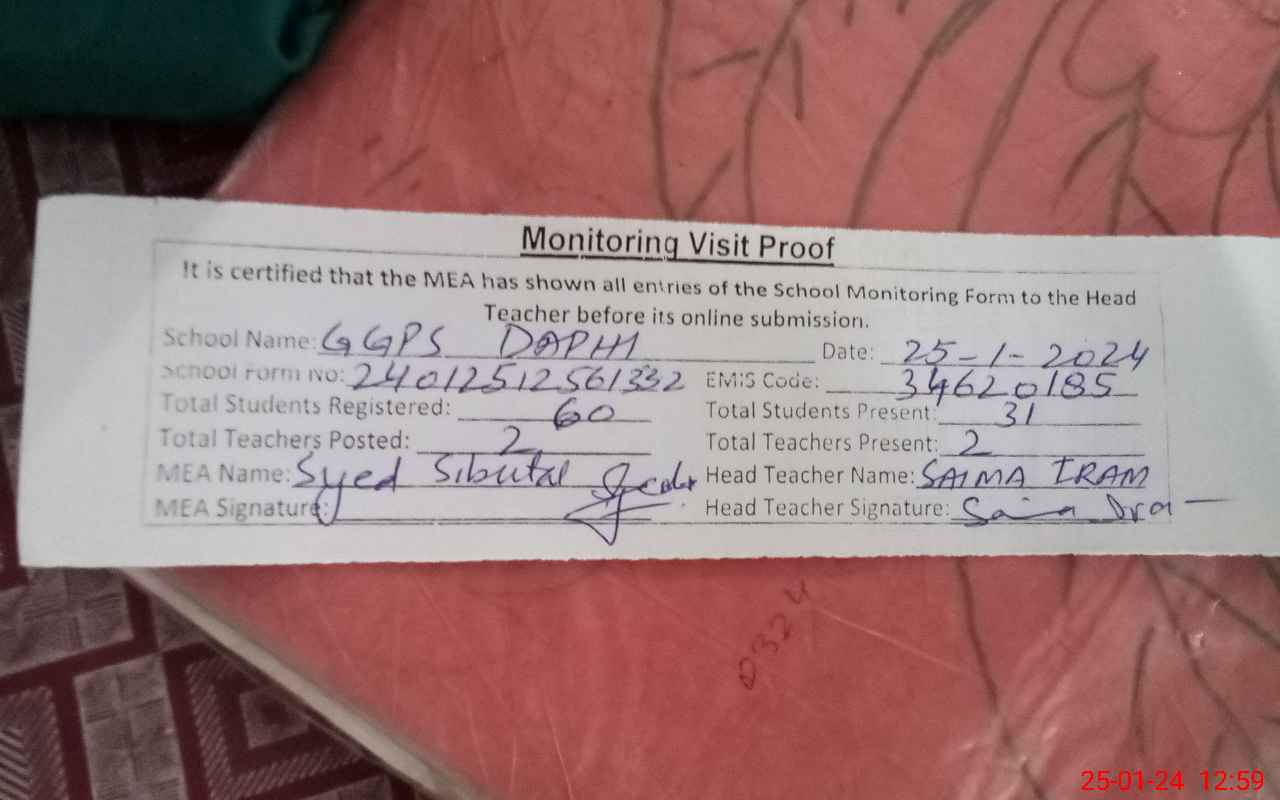 Monitoring Visit Proof
It is certified that the MEA has shown all entries of the School Monitoring Form to the Head
Teacher before its online submission.
School Name: GGPS DAPHI Date: 25-1-2024
School Form No: 24012512561332 EMIS Code: 34620185
Total Students Registered: 60 Total Students Present: 31
Total Teachers Posted: 2 Total Teachers Present: 2
MEA Name: Syed Sibutal Head Teacher Name: SAIMA IRAM
MEA Signature: Head Teacher Signature:
0324
25-01-24 12:59